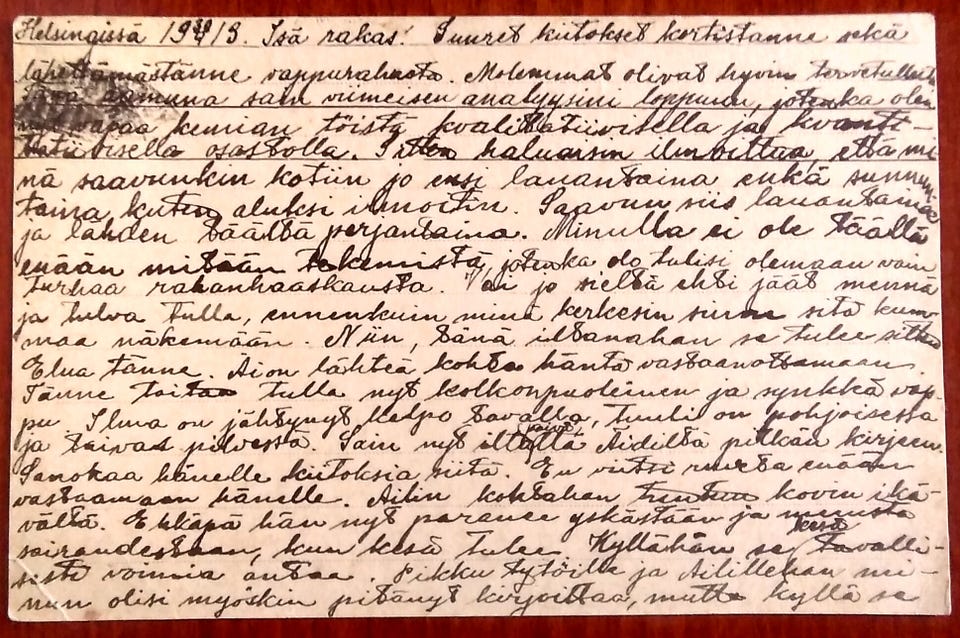 Helsingissä 19 30/4 13. Isä rakas! Suuret kiitokset kortistanne sekä
lähettämästänne vappurahasta. Molemmat olivat hyvin tervetulleita
aamuna sain viimeisen analyysini loppuun, jotenka olen
nyt vapaa kemian töistä kvalitatiivisella ja kvanti-
tatiivisella osastolla. Sitten haluaisin ilmoittaa, että mi-
nä saavunkin kotiin jo ensi lauantaina enkä sunnun-
taina, kuten aluksi ilmoitin. Saavun siis lauantaina
ja lähden täältä perjantaina. Minulla ei ole täällä
enään mitään tekemistä, jotenka olo tulisi olemaan vain
turhaa rahanhaaskausta. Vai jo sieltä ehti jäät mennä
ja tulva tulla, ennenkuin minä kerkesin sinne sitä kum-
maa näkemään. Niin, tänä iltanahan se tulee sitten
Elsa tänne. Aion lähteä kohta häntä vastaanottamaan.
Tänne taitaa tulla nyt kolkonpuoleinen ja synkkä vap-
pu. Ilma on jähtynyt tavalla, tuuli on pohjoisessa
ja taivas pilvessä. Sain nyt iltapäivällä Äidiltä pitkän kirjeen.
Sanokaa hänelle kiitoksia siitä. En viitsi ruveta enään
vastaamaan hänelle. Ailin kohtahan tuntuu kovin ikä-
vältä. Ehkäpä hän nyt paranee yskästään ja muusta
sairaudestaan, kun kesä tulee. Kyllähän se kesä tavalli-
sesti voimia antaa. Pikku tytöille ja Ailillehan mi-
nun olisi myöskin pitänyt kirjoittaa, mutta kyllä se